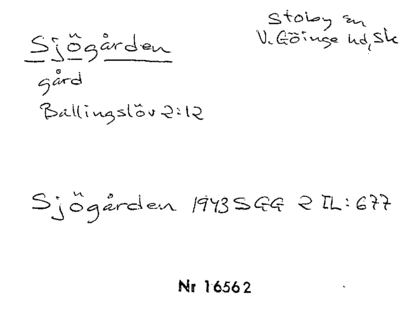 Sjögården
Stoby sn
V. Göinge hd, Sk
gård
Ballingslöv 2:12
Sjögården 1943 SGG 2 IL: 677
Nr 16562